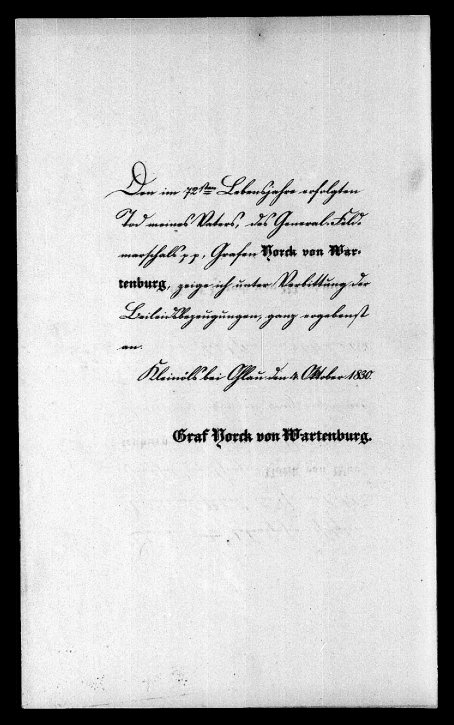 Den im 72sten Lebensjahre erfolgten
Tod meines Vaters, des General-Feld-
marschals p. p., Grafen Yorck von War-
tenburg, zeige ich unter Verbittung der
Beileidsbezeugungen, ganz ergebenst
an.
Kleinöls bei Ohlau den 4. Oktober 1830.
Graf Yorck von Wartenburg.